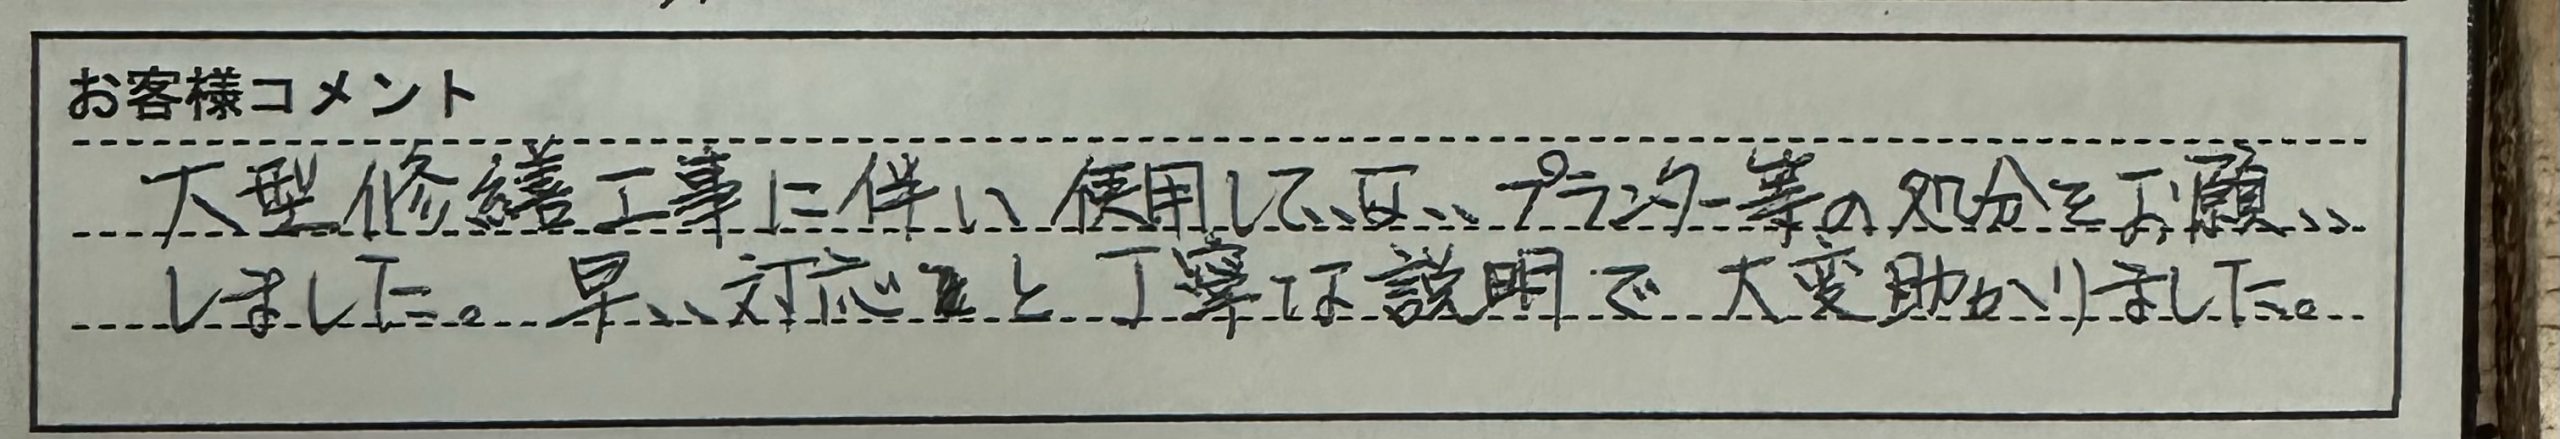 お客様コメント
大型修繕工事に伴い使用していないプランター等の処分をお願い
しました。早い対応と丁寧な説明で大変助かりました。